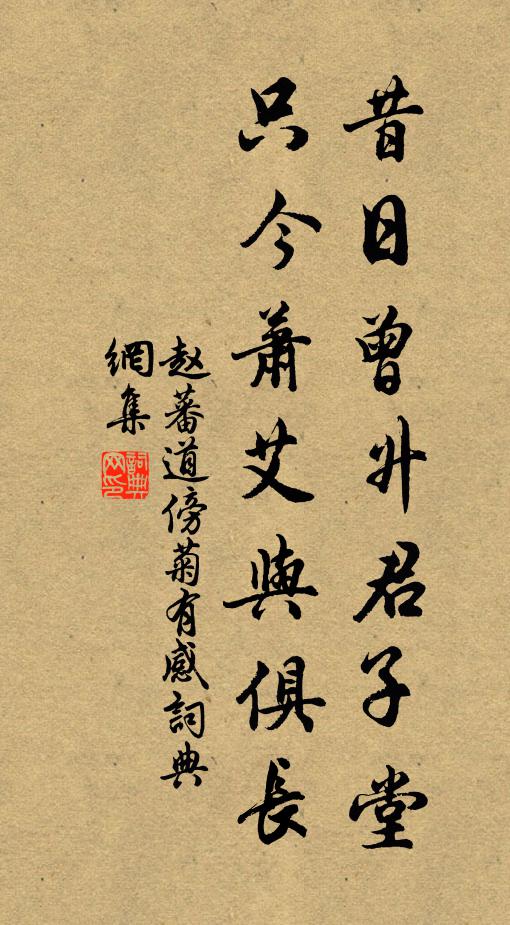 昔日曾升君子堂
只今蕭艾與俱長
赵蕃道傍菊有感詞典
網集
詞典
网印